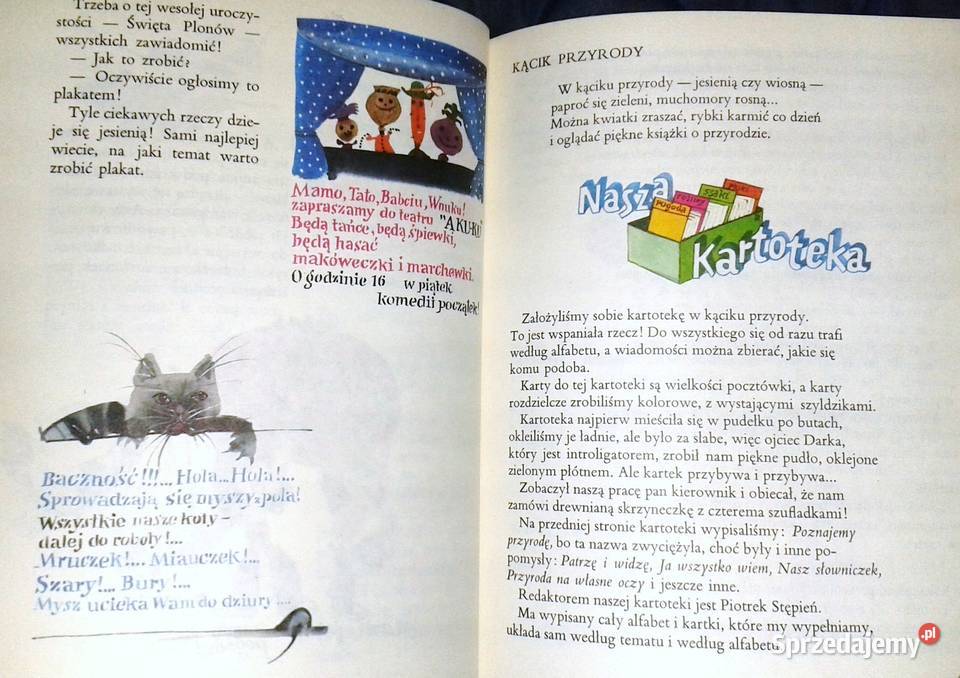 Trzeba o tej wesołej uroczy-
stości — Święta Plonów —
wszystkich zawiadomić!
— Jak to zrobić?
— Oczywiście ogłosimy to
plakatem!
Tyle ciekawych rzeczy dzie-
je się jesienią! Sami najlepiej
wiecie, na jaki temat warto
zrobić plakat.
Mamo, Tato, Babciu, Wnuku!
zapraszamy do teatru "A KU-KU"
Będą tańce, będą śpiewki,
będą hasać
makóweczki i marchewki.
O godzinie 16 w piątek
komedii początek!
Baczność!!!... Hola... Hola!...
Sprowadzają się myszy z pola!
Wszystkie nasze koty –
dalej do roboty!...
Mruczek!... Miauczek!...
Szary!... Bury!...
Mysz ucieka Wam do dziury....
KĄCIK PRZYRODY
W kąciku przyrody — jesienią czy wiosną —
paproć się zieleni, muchomory rosną...
Można kwiatki zraszać, rybki karmić co dzień
i oglądać piękne książki o przyrodzie.
Nasza
pogoda
rośliny
ssaki
ptaki
Kartoteka
Założyliśmy sobie kartotekę w kąciku przyrody.
To jest wspaniała rzecz! Do wszystkiego się od razu trafi
według alfabetu, a wiadomości można zbierać, jakie się
komu podoba.
Karty do tej kartoteki są wielkości pocztówki, a karty
rozdzielcze zrobiliśmy kolorowe, z wystającymi szyldzikami.
Kartoteka najpierw mieściła się w pudełku po butach,
okleiliśmy je ładnie, ale było za słabe, więc ojciec Darka,
który jest introligatorem, zrobił nam piękne pudło, oklejone
zielonym płótnem. Ale kartek przybywa i przybywa...
Zobaczył naszą pracę pan kierownik i obiecał, że nam
zamówi drewnianą skrzyneczkę z czterema szufladkami!
Na przedniej stronie kartoteki wypisaliśmy: Poznajemy
przyrodę, bo ta nazwa zwyciężyła, choć były i inne po-
pomysły: Patrzę i widzę, Ja wszystko wiem, Nasz słowniczek,
Przyroda na własne oczy i jeszcze inne.
Redaktorem naszej kartoteki jest Piotrek Stępień.
Ma wypisany cały alfabet i kartki, które my wypełniamy,
układa sam według tematu i według alfabetu.
Sprzedajemy.pl